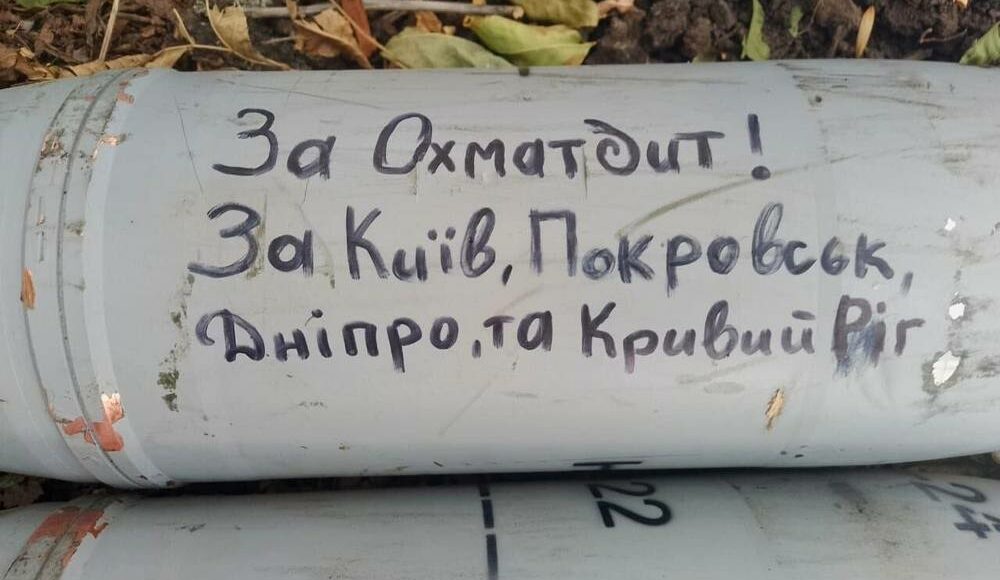 За Охматдит!
За Київ, Покровськ,
Дніпро, та Кривий Ріг
H22
24